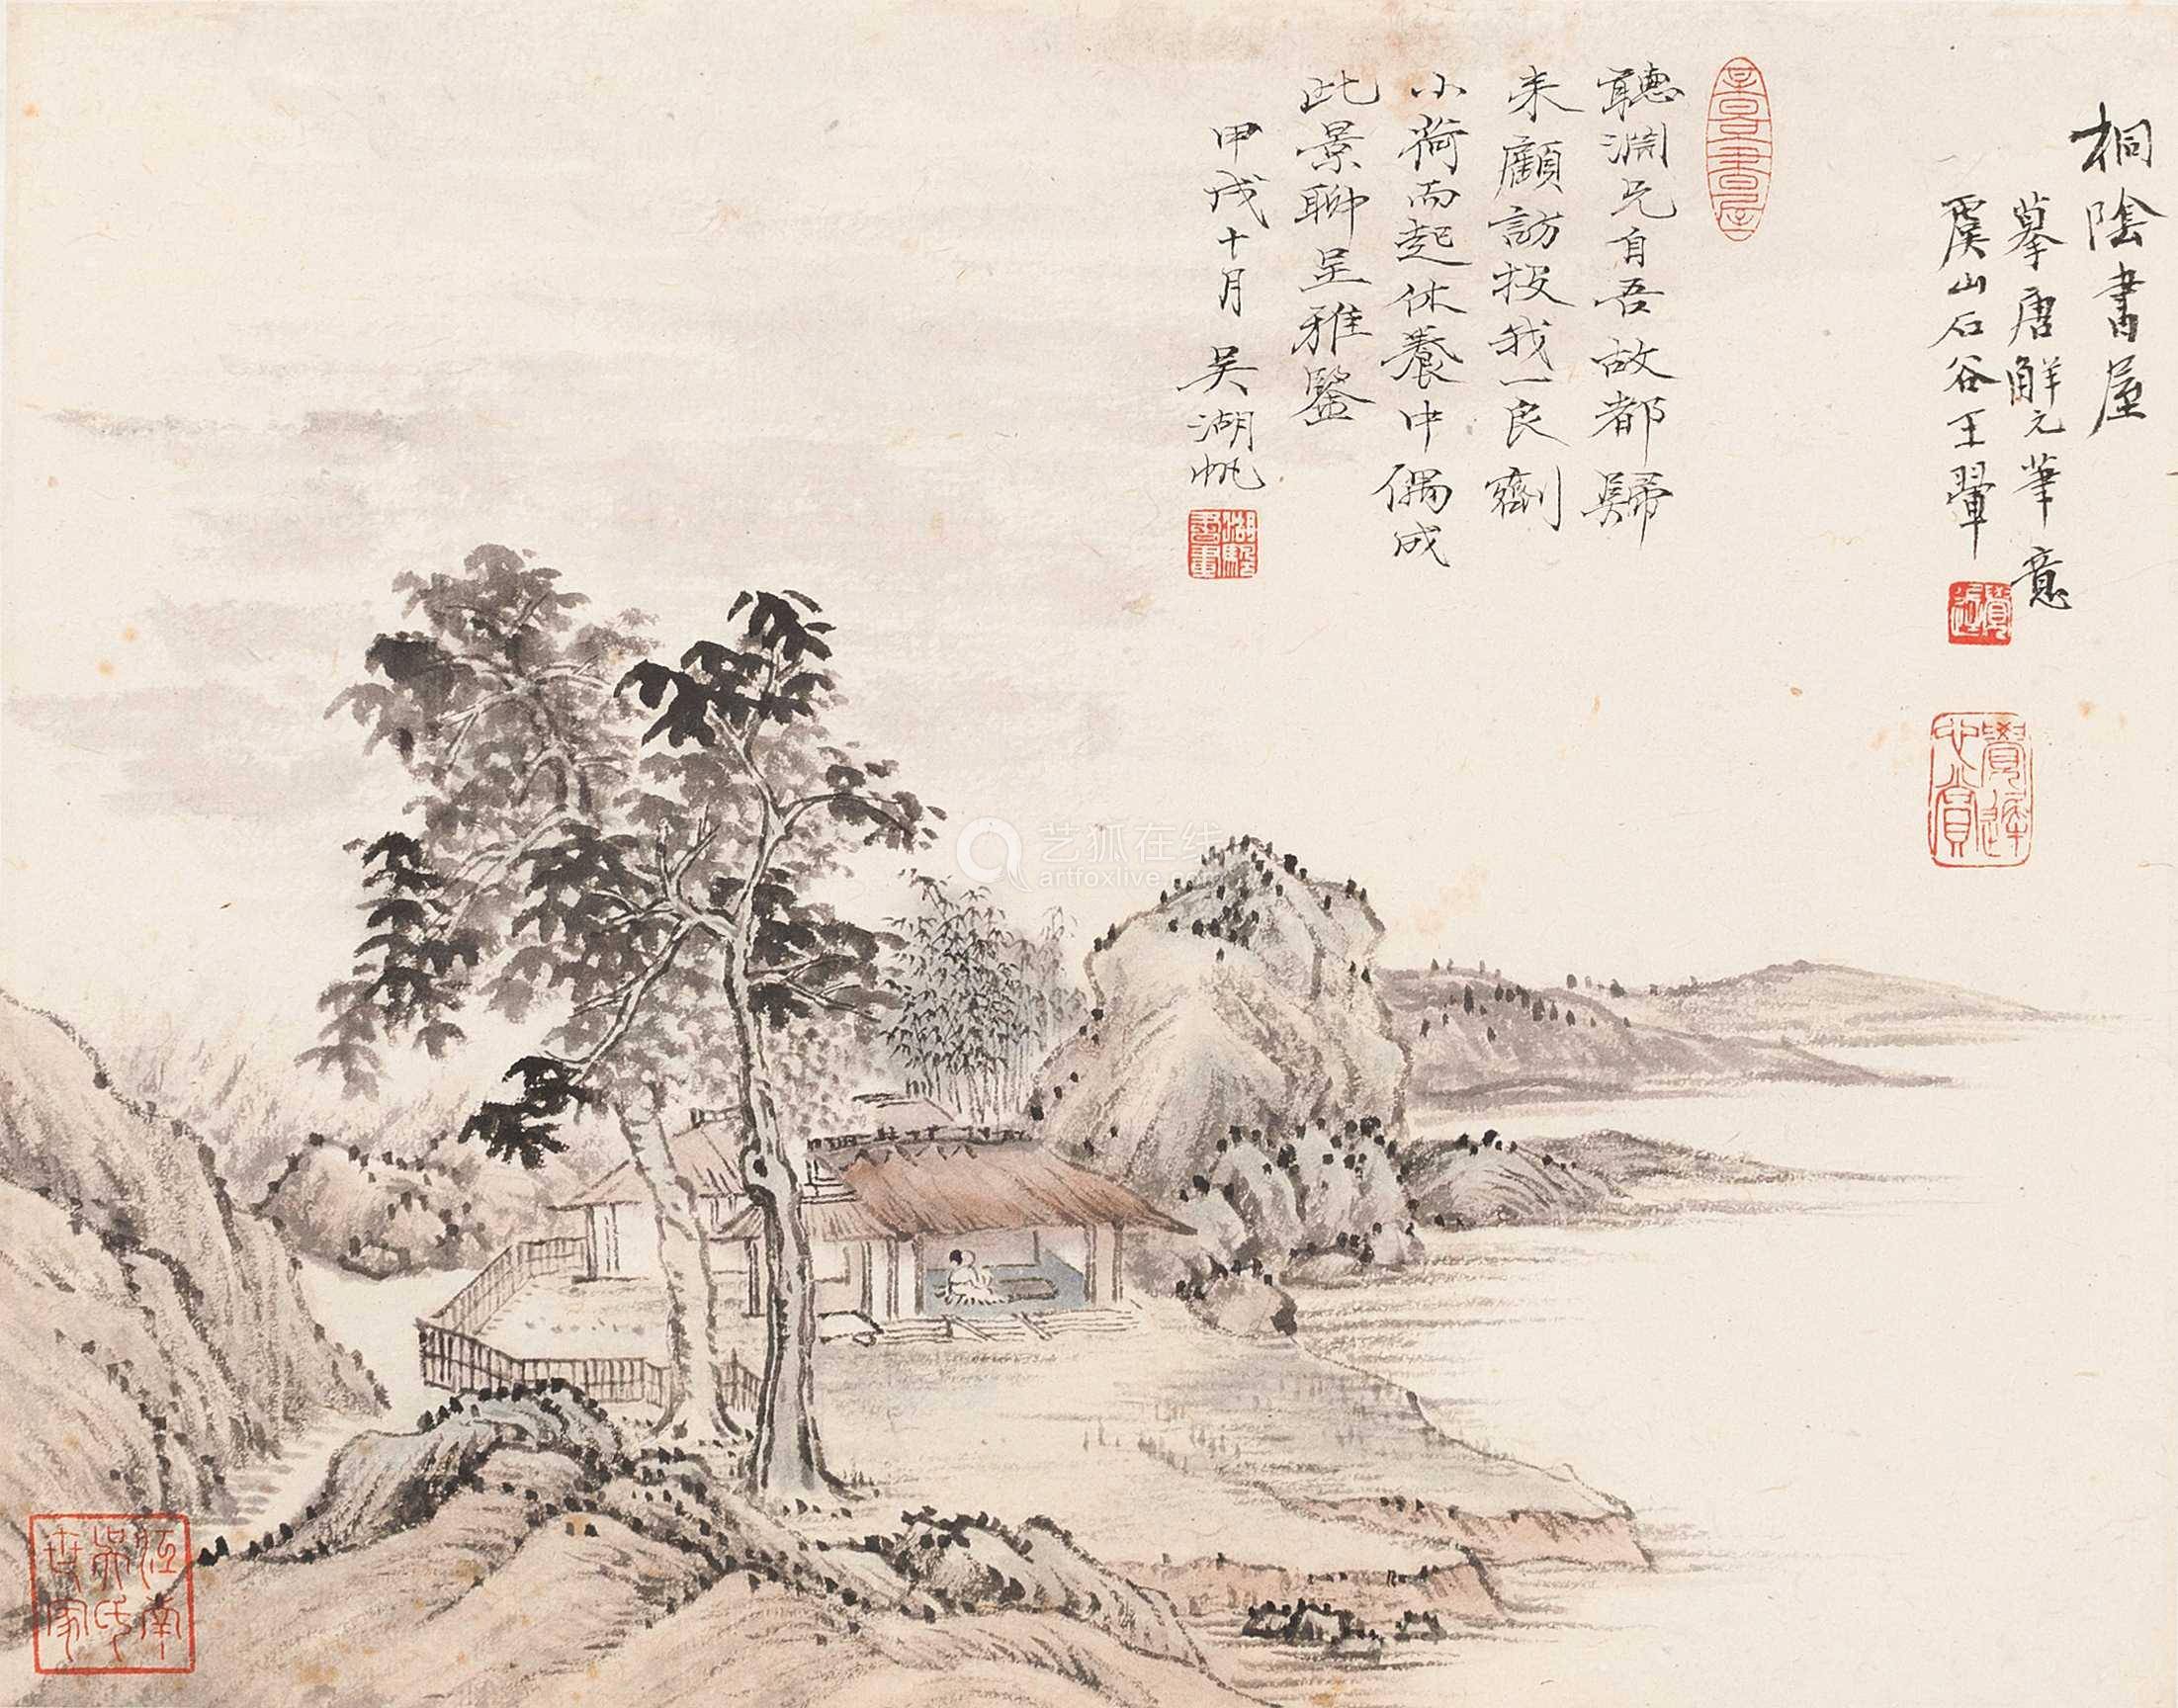 桐陰書屋
摹唐解元筆意
虞山石谷王翬
聽淵兄自吾故都歸
来顧訪投我一良劑
小荷而起休養中偶成
此景聊呈雅鑒
甲戌十月 吴湖帆
江南
吳氏
世家
艺狐在线
artfoxlive.com